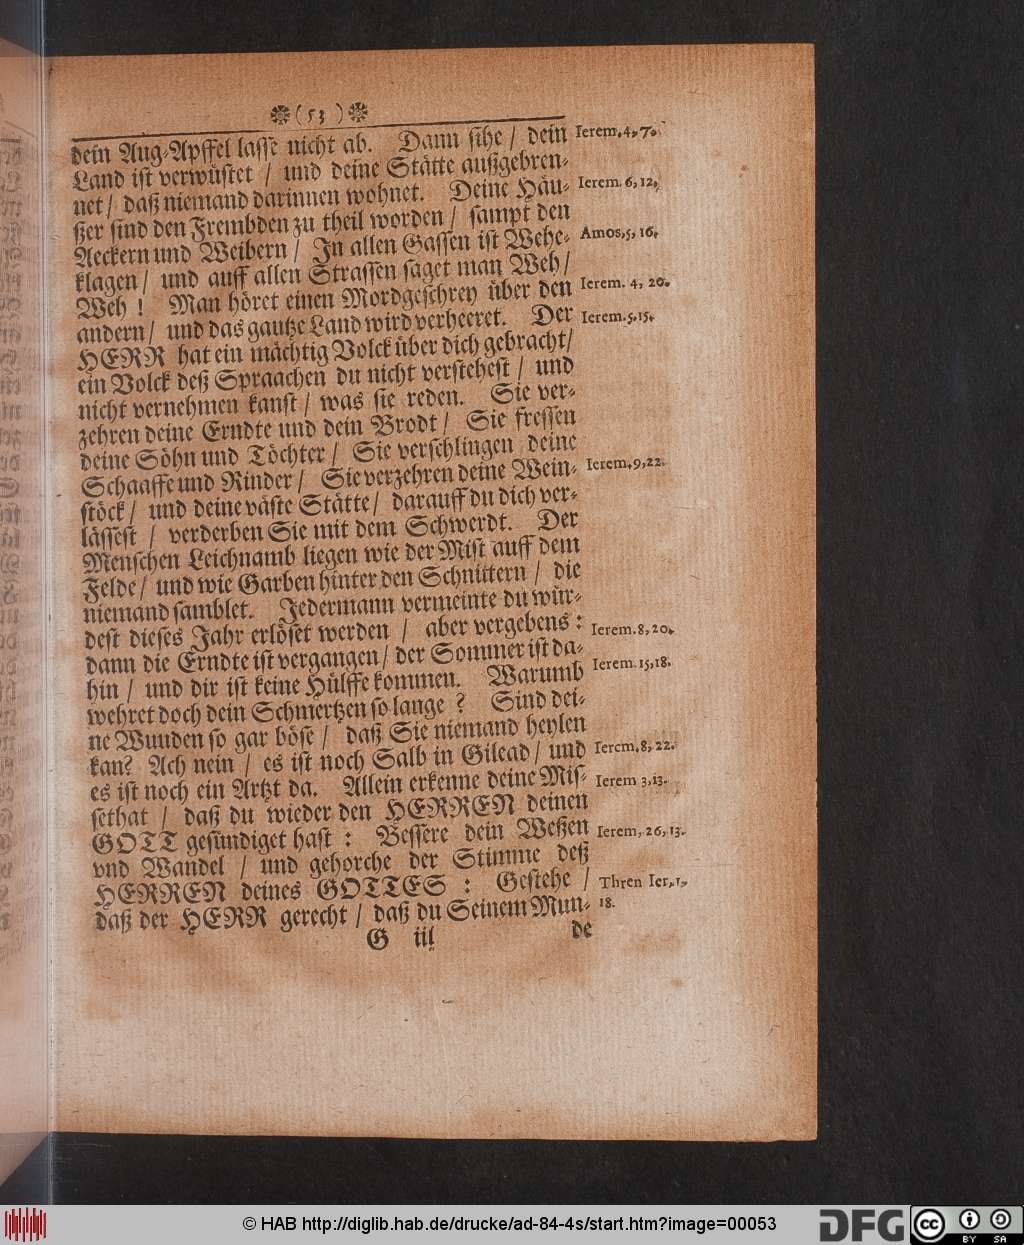 ❋( 53 )❋
dein Aug-Apffel lasse nicht ab. Dann sihe / dein Ierem. 4, 7.
Land ist verwüstet / und deine Stätte außgebren-
net / daß niemand darinnen wohnet. Deine Häu- Ierem. 6, 12.
ßer sind den Frembden zu theil worden / sampt den
Aeckern und Weibern / In allen Gassen ist Wehe- Amos, 5, 16.
klagen / und auff allen Strassen saget man Weh /
Weh ! Man höret einen Mordgeschrey über den Ierem. 4, 20.
andern / und das gantze Land wird verheeret. Der Ierem. 5, 15.
HERR hat ein mächtig Volck über dich gebracht /
ein Volck deß Spraachen du nicht verstehest / und
nicht vernehmen kanst / was sie reden. Sie ver-
zehren deine Erndte und dein Brodt / Sie fressen
deine Söhn und Töchter / Sie verschlingen deine
Schaaffe und Rinder / Sie verzehren deine Wein- Ierem. 9, 22.
stöck / und deine väste Stätte / darauff du dich ver-
lässest / verderben Sie mit dem Schwerdt. Der
Menschen Leichnamb liegen wie der Mist auff dem
Felde / und wie Garben hinter den Schnittern / die
niemand samblet. Jedermann vermeinte du wür-
dest dieses Jahr erlöset werden / aber vergebens : Ierem. 8, 20.
dann die Erndte ist vergangen / der Sommer ist da- Ierem. 15, 18.
hin / und dir ist keine Hülffe kommen. Warumb
wehret doch dein Schmertzen so lange ? Sind dei-
ne Wunden so gar böse / daß Sie niemand heylen
kan? Ach nein / es ist noch Salb in Gilead / und Ierem. 8, 22.
es ist noch ein Artzt da. Allein erkenne deine Mis- Ierem 3, 13.
sethat / daß du wieder den HERREN deinen
GOTT gesündiget hast : Bessere dein Weßen Ierem, 26, 13.
vnd Wandel / und gehorche der Stimme deß
HERREN deines GOTTES : Gestehe / Thren Ier. 1.
daß der HERR gerecht / daß du Seinem Mun- 18.
G iij de
© HAB http://diglib.hab.de/drucke/ad-84-4s/start.htm?image=00053
DFG
cc BY SA